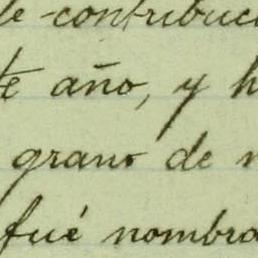 de contribuci
te año, y h
grano de m
fué nombra